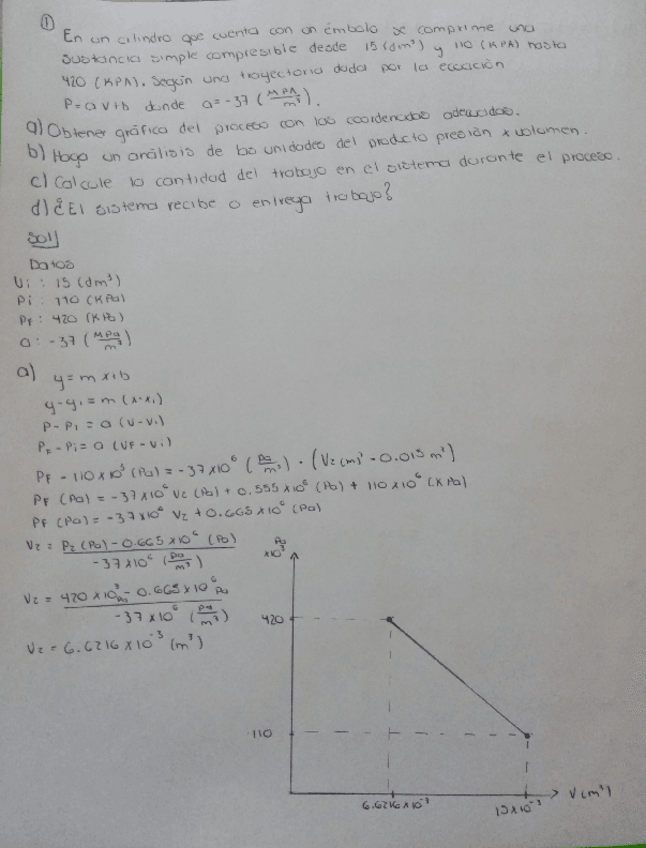 ①
En un cilindro que cuenta con un émbolo se comprime una
sustancia simple compresible desde 15 (dm³) y 110 (KPA) hasta
420 (KPA). Según una trayectoria dada por la ecuación
P = a v + b donde a = -37 (MPA/m³).
a) Obtener gráfica del proceso con las coordenadas adecuadas.
b) Haga un análisis de las unidades del producto presión x volumen.
c) Calcule la cantidad del trabajo en el sistema durante el proceso.
d) ¿El sistema recibe o entrega trabajo?
Sol
Datos
Vi : 15 (dm³)
Pi : 110 (KPa)
PF : 420 (KPa)
a : -37 (MPa/m³)
a) y = m x + b
y - y₁ = m (x - x₁)
P - P₁ = a (V - V₁)
PF - Pi = a (VF - Vi)
PF - 110x10³ (Pa) = -37x10⁶ (Pa/m³) · (V2 (m)³ - 0.015 m³]
PF (Pa) = -37x10⁶ V2 (Pa) + 0.555x10⁶ (Pa) + 110x10⁶ (KPa)
PF (Pa) = -37x10⁶ V2 + 0.665x10⁶ (Pa)
V2 = P2 (Pa) - 0.665x10⁶ (Pa) / -37x10⁶ (Pa/m³)
V2 = 420x10³ Pa - 0.665x10⁶ Pa / -37x10⁶ (Pa/m³)
V2 = 6.6216x10⁻³ (m³)
Pa
x10³
420
110
6.6216x10⁻³
15x10⁻³
V (m³)